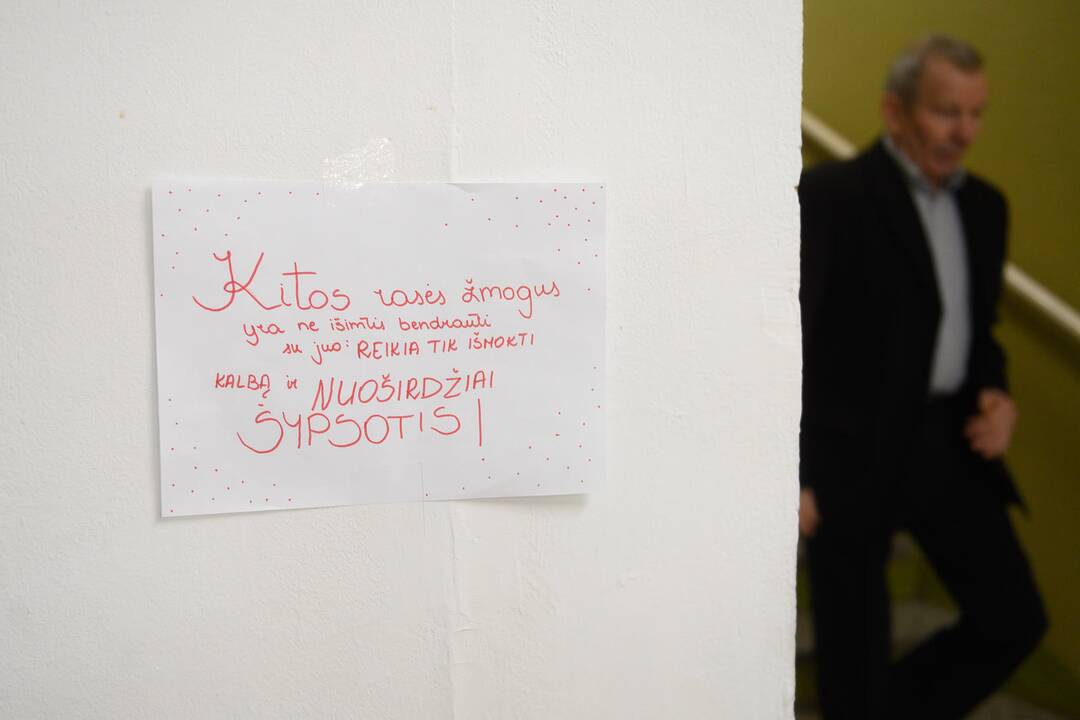 Kitos rasės žmogus
yra ne išimtis bendrauti
su juo: REIKIA TIK IŠMOKTI
KALBĄ ir NUOŠIRDŽIAI
ŠYPSOTIS!